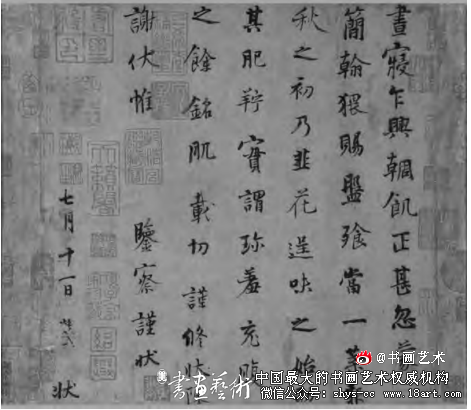 晝寢乍興輖飢正甚忽
簡翰猥賜盤飧當一葉報
秋之初乃韭花逞味之始
其肥羜實謂珍羞充腹
之餘銘肌載切謹修狀
謝伏惟 鑒察謹狀
七月十一日 狀
@书画艺术
書畫藝術
中国最大的书画艺术权威机构
微信公众号: shys-cc www.18art.com